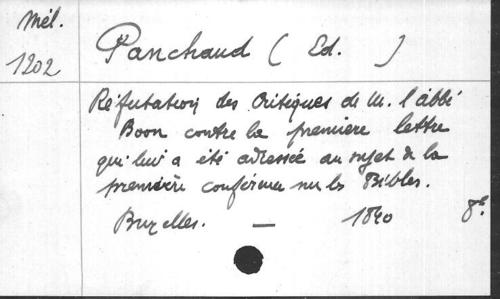 Mél.
1202
Panchaud ( Ed. )
Réfutation des Critiques de M. l'abbé
Boon contre la première lettre
qui lui a été adressée au sujet de la
première conférence sur les Bibles.
Bruxelles. — 1840 8°.